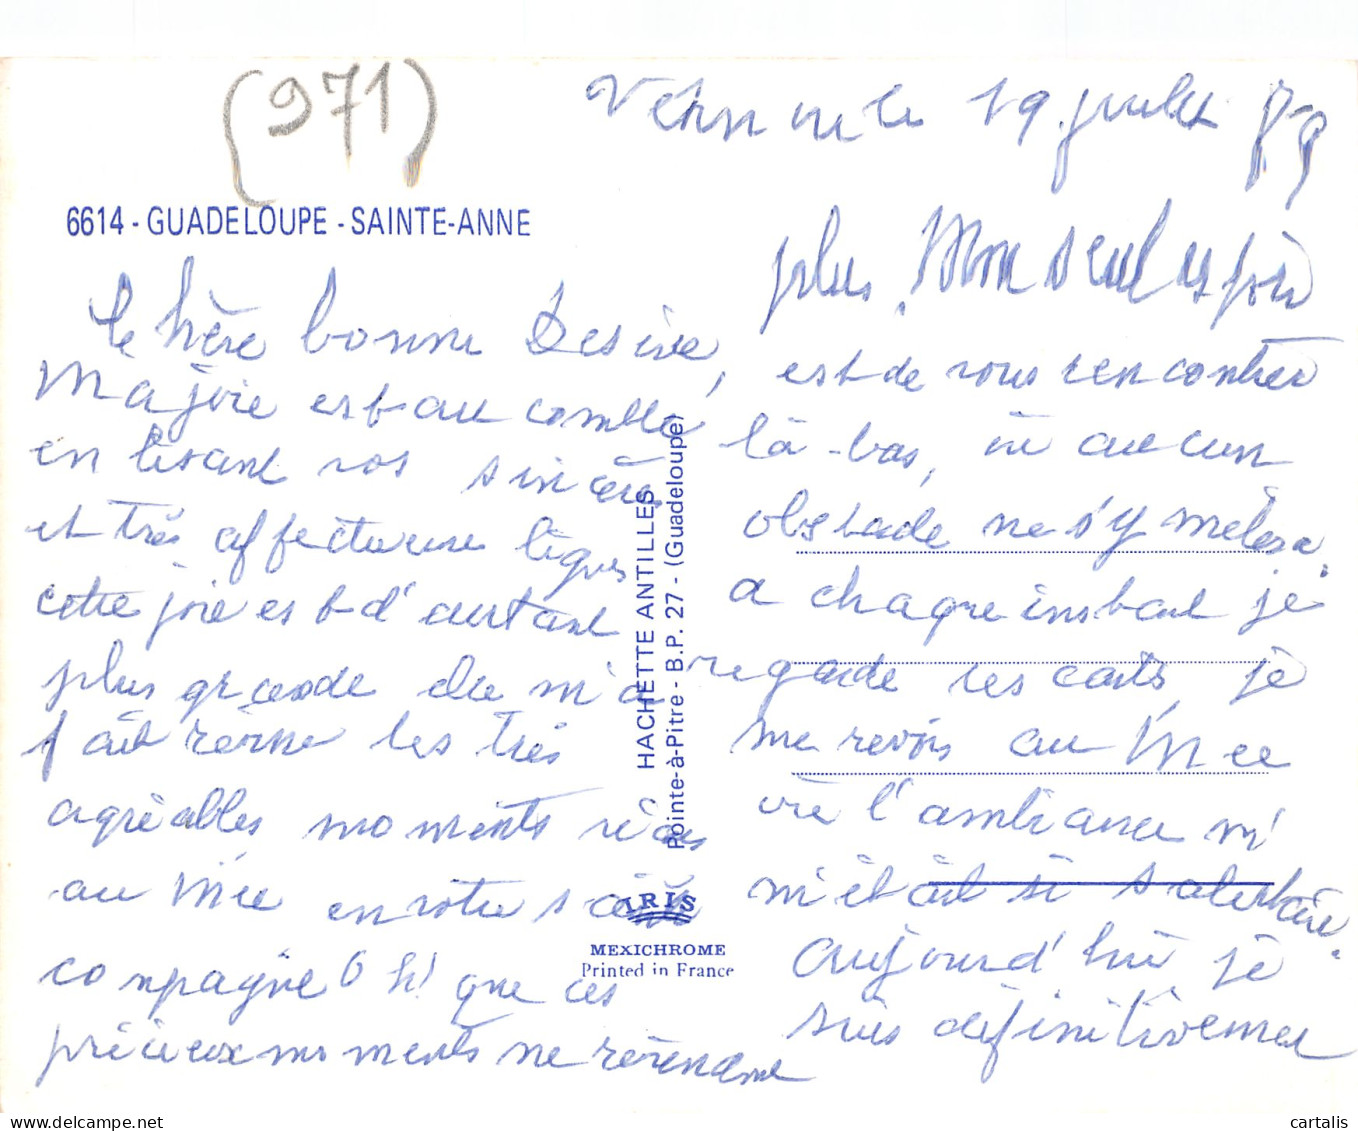 (971)
le 19 juillet 79
6614 - GUADELOUPE - SAINTE-ANNE
bonne Desirée,
Ma joie est au comble
en lisant vos sincères
et très affectueuse lignes
cette joie est d'autant
plus grande elle m'a
fait les très
agréables moments
au Mée en votre
compagnie Oh! que ces
précieux moments ne
plus. Mon seul espoir
est de vous rencontrer
là-bas, où aucun
obstacle ne s'y mêlera.
a chaque instant je
regarde ces carts, je
me revois au Mée
où l'ambiance m'
m'était si salutaire.
aujourd'hui je
suis définitivement
HACHETTE ANTILLES
Pointe-à-Pitre - B.P. 27 - (Guadeloupe)
IRIS
MEXICHROME
Printed in France
delcampe.net
cartalis